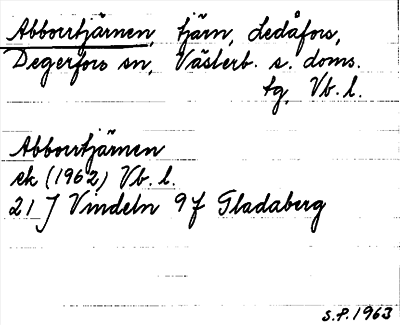 Abborrtjärnen, tjärn, Ledåfors,
Degerfors sn, Västerb. s. doms.
tg, Vb. l.
Abborrtjärnen
ek (1962) Vb. l.
21 J Vindeln 9 f Fladaberg
S.P. 1963